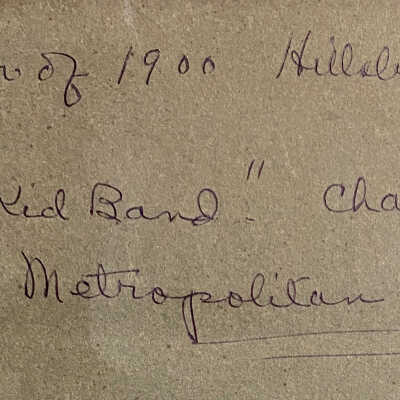 of 1900 Hillsb
Kid Band". Cha
Metropolitan